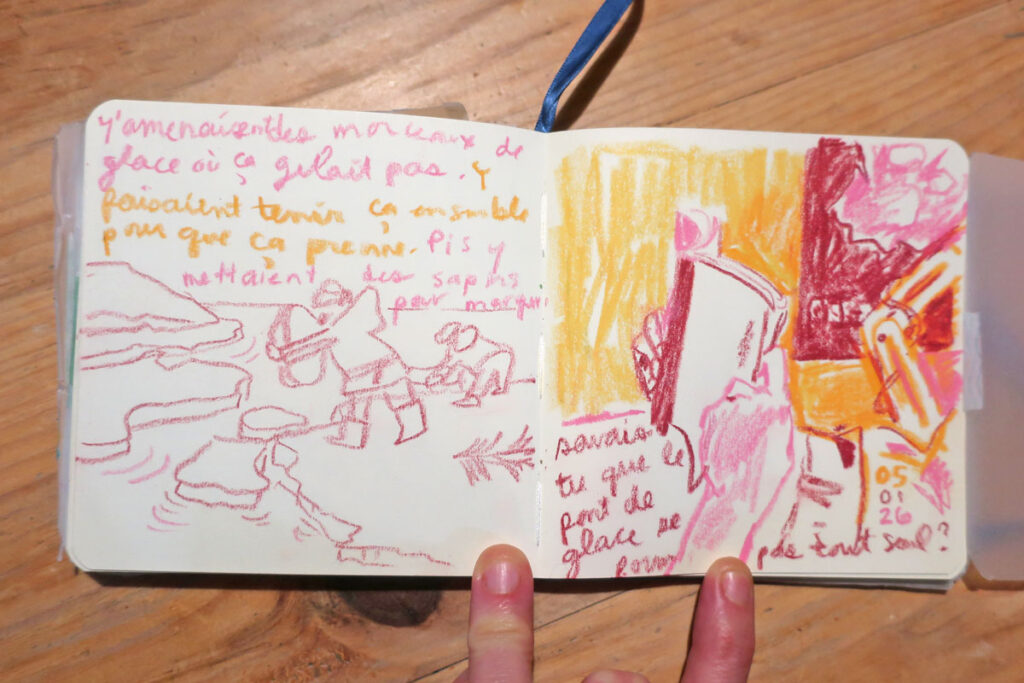 y'amenaient des morceaux de
glace où ça gelait pas. Y
faisaient tenir ça ensemble
pour que ça prenne. Pis y
mettaient des sapins
pour marquer
savais-
tu que le
pont de
glace se
forme
pas tout seul?
05
01
26